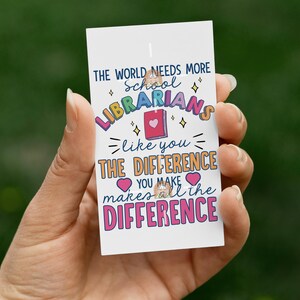 THE WORLD NEEDS MORE
School
LIBRARIANS
like you
THE DIFFERENCE
YOU MAKE
makes all the
DIFFERENCE